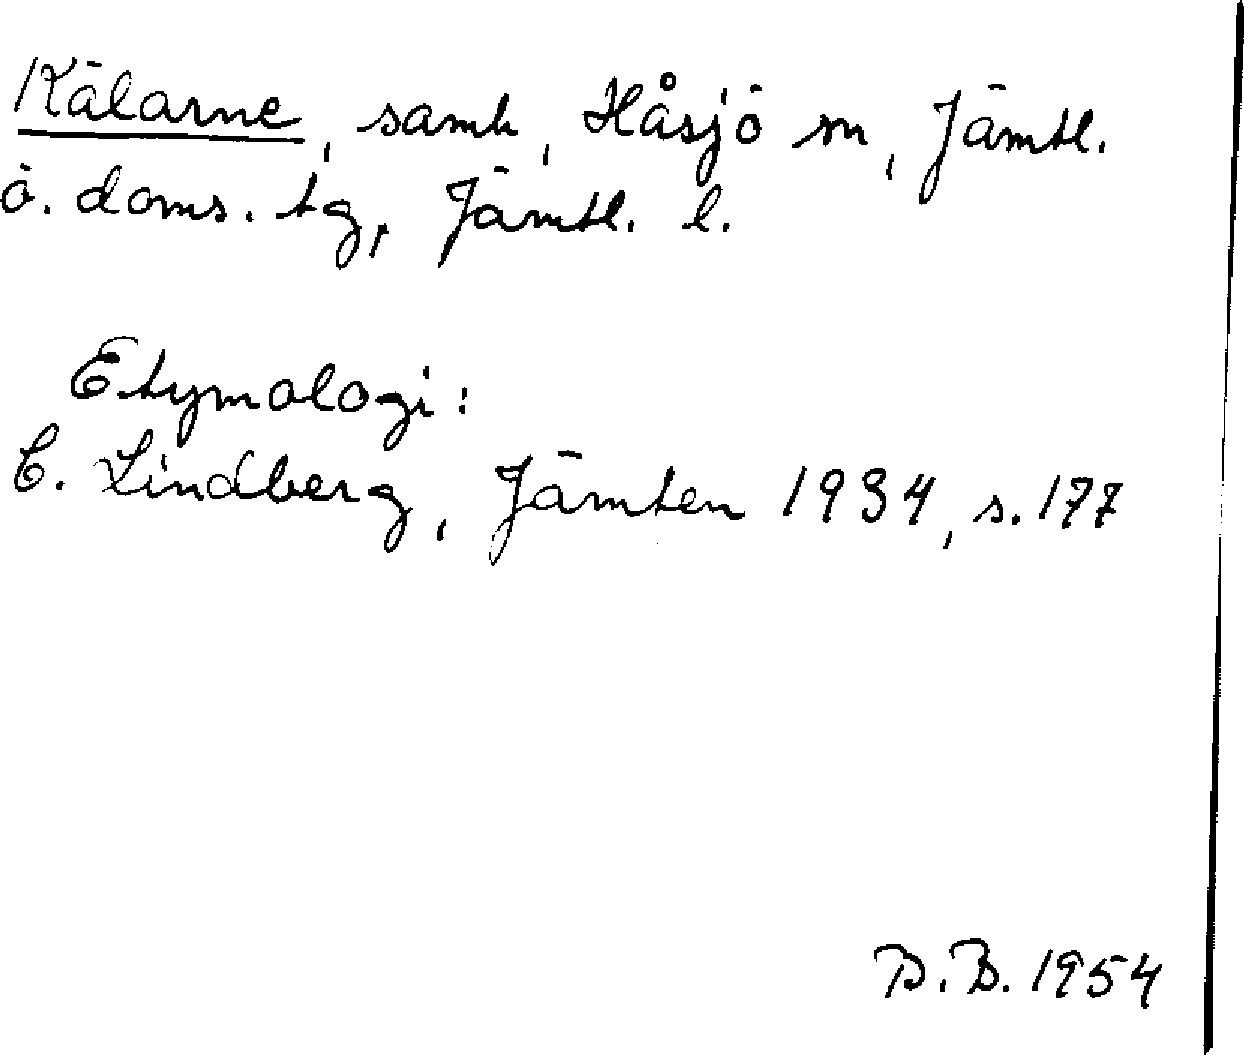 Kälarne, samh, Håsjö sn, Jämtl.
ö. doms. tg, Jämtl. l.
Etymologi:
C. Lindberg, Jämten 1934, s. 177
B.B. 1954